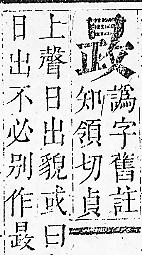 晸
譌字舊註
知領切貞
上聲日出貌或曰
日出不必別作晸